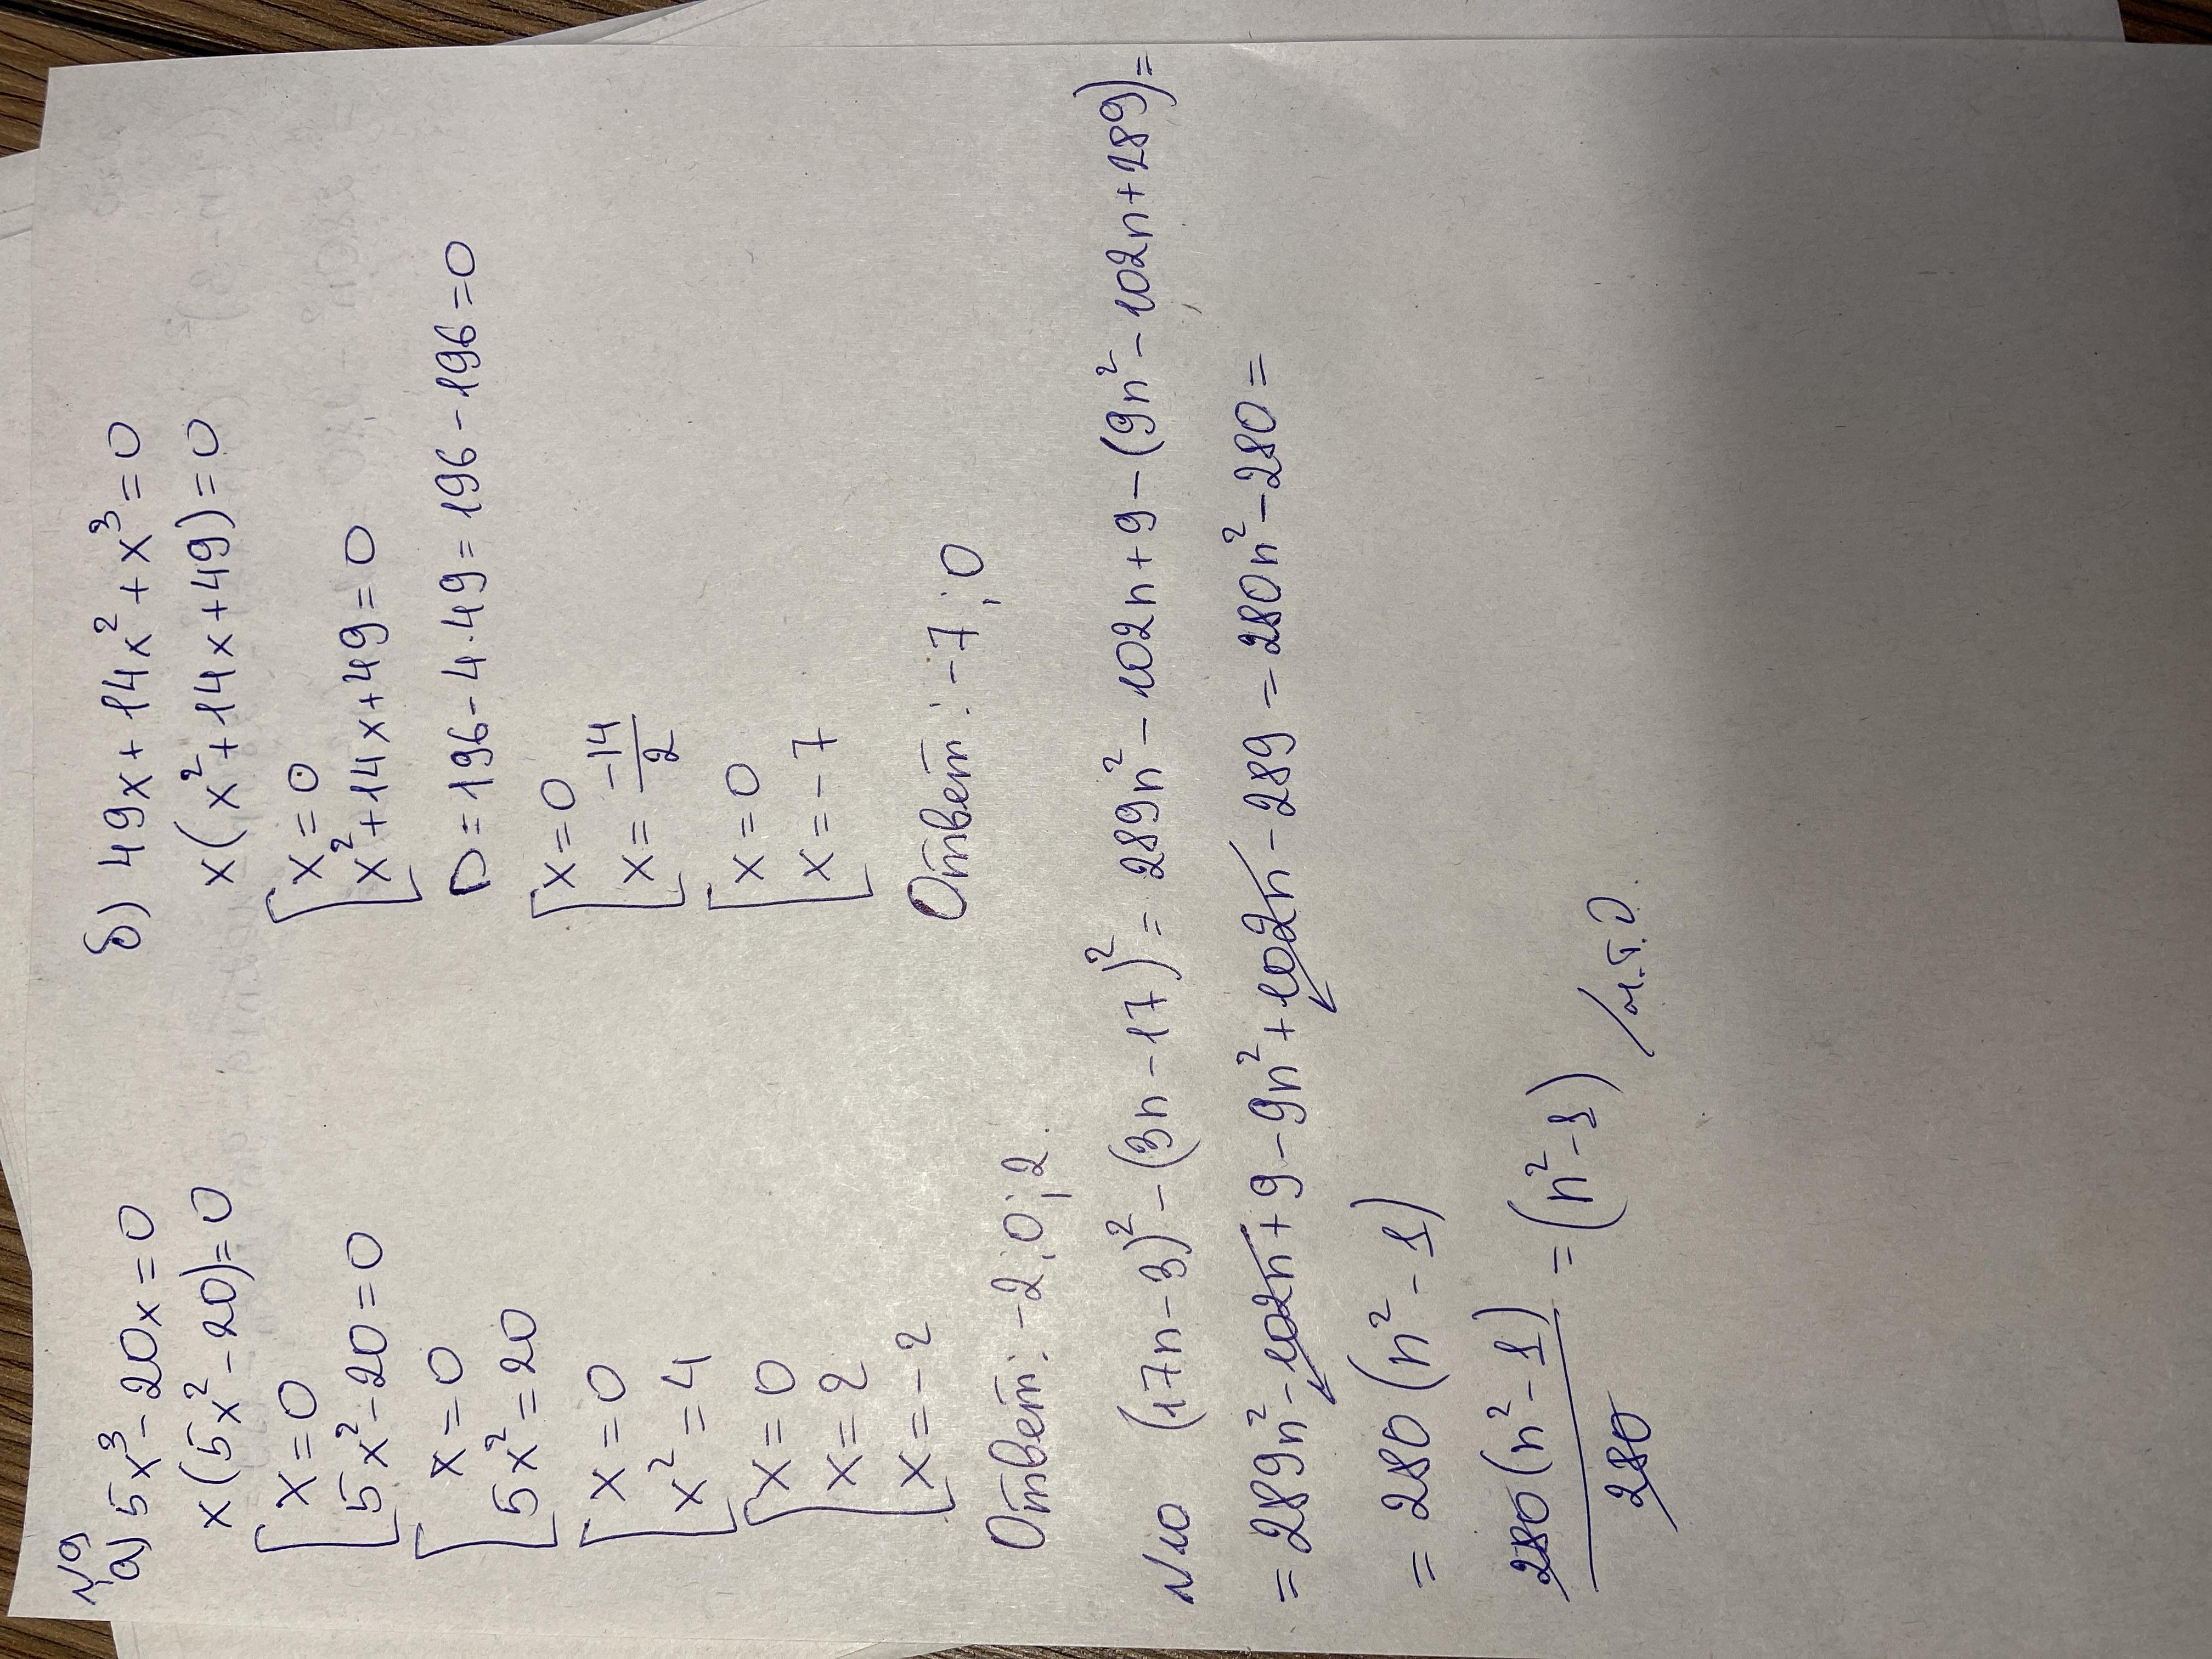 №9
а) 5x³-20x=0
x(5x²-20)=0
[x=0
5x²-20=0
[x=0
5x²=20
[x=0
x²=4
[x=0
x=2
x=-2
Ответ: -2; 0; 2
б) 49x+14x²+x³=0
x(x²+14x+49)=0
[x=0
x²+14x+49=0
D=196-4·49=196-196=0
[x=0
x=-14/2
[x=0
x=-7
Ответ: -7; 0
№10 (17n-3)²-(3n-17)²=289n²-102n+9-(9n²-102n+289)=
=289n²-102n+9-9n²+102n-289=280n²-280=
=280(n²-1)
280(n²-1)/280=(n²-1) ч.т.д.